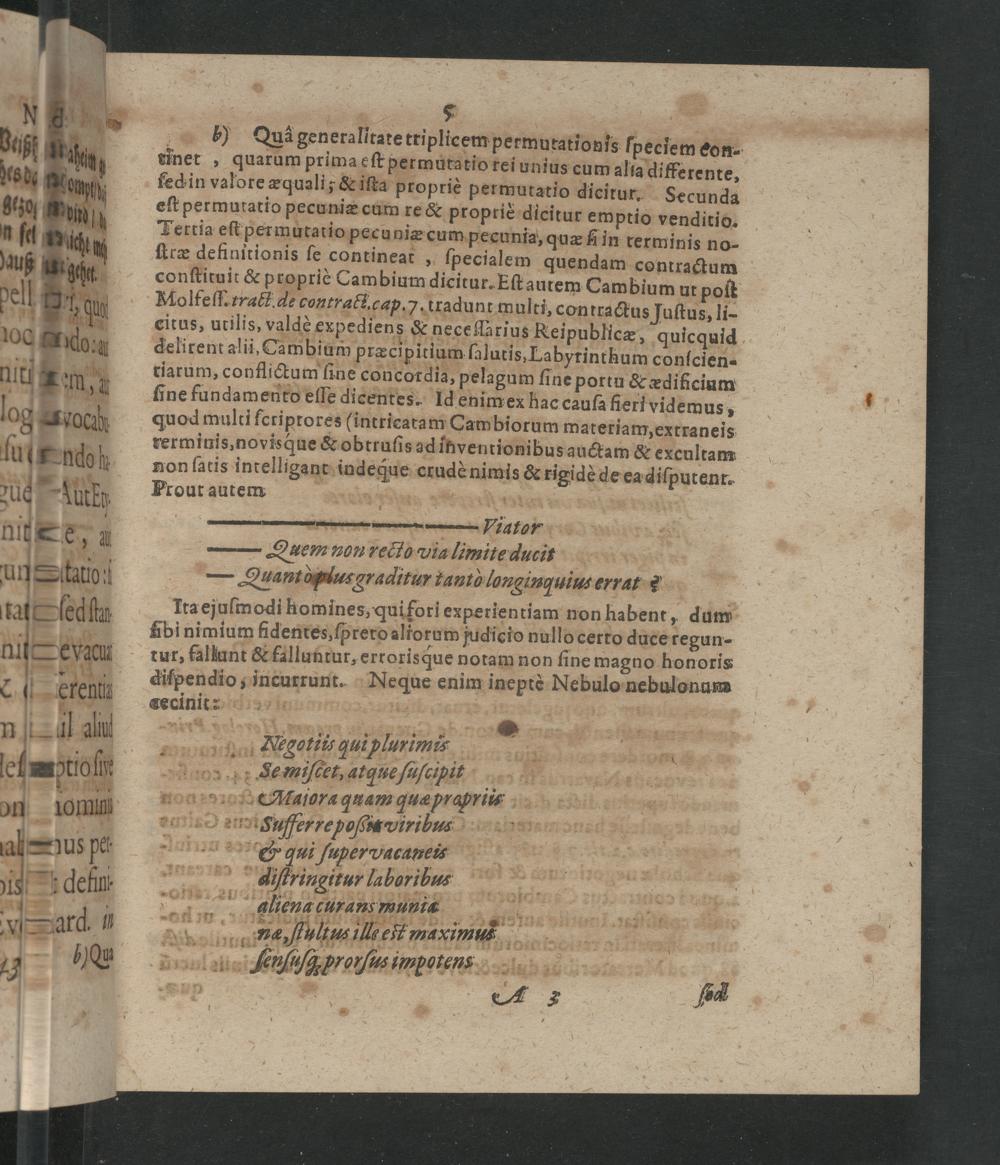 5
b) Quâ generalitate triplicem permutationis ſpeciem con-
tinet , quarum prima eſt permutatio rei unius cum alia differente,
ſed in valore æquali; & iſta propriè permutatio dicitur. Secunda
eſt permutatio pecuniæ cum re & propriè dicitur emptio venditio.
Tertia eſt permutatio pecuniæ cum pecunia, quæ ſi in terminis no-
ſtræ definitionis ſe contineat , ſpecialem quendam contractum
conſtituit & propriè Cambium dicitur. Eſt autem Cambium ut poſt
Molfeſſ. tract. de contract. cap. 7. tradunt multi, contractus Juſtus, li-
citus, utilis, valdè expediens & neceſſarius Reipublicæ, quicquid
delirent alii, Cambium præcipitium ſalutis, Labyrinthum conſcien-
tiarum, conflictum ſine concordia, pelagum ſine portu & ædificium
ſine fundamento eſſe dicentes. Id enim ex hac cauſa fieri videmus,
quod multi ſcriptores (intricatam Cambiorum materiam, extraneis
terminis, noviſq́ue & obtruſis ad inventionibus auctam & excultam
non ſatis intelligant indeq́ue crudè nimis & rigidè de ea diſputent.
Prout autem
——— Viator
—— Quem non recto via limite ducit
— Quantò plus graditur tantò longinquius errat ?
Ita ejuſmodi homines, qui fori experientiam non habent, dum
ſibi nimium fidentes, ſpreto aliorum judicio nullo certo duce regun-
tur, fallunt & falluntur, erroriſq́ue notam non ſine magno honoris
diſpendio, incurrunt. Neque enim ineptè Nebulo nebulonum
cecinit:
Negotiis qui plurimis
Se miſcet, atque ſuſcipit
Majora quam quæ propriis
Sufferre poßit viribus
& qui ſupervacaneis
diſtringitur laboribus
aliena curans munia
næ, ſtultus ille eſt maximus
ſenſusq; prorſus impotens
A 3 ſed